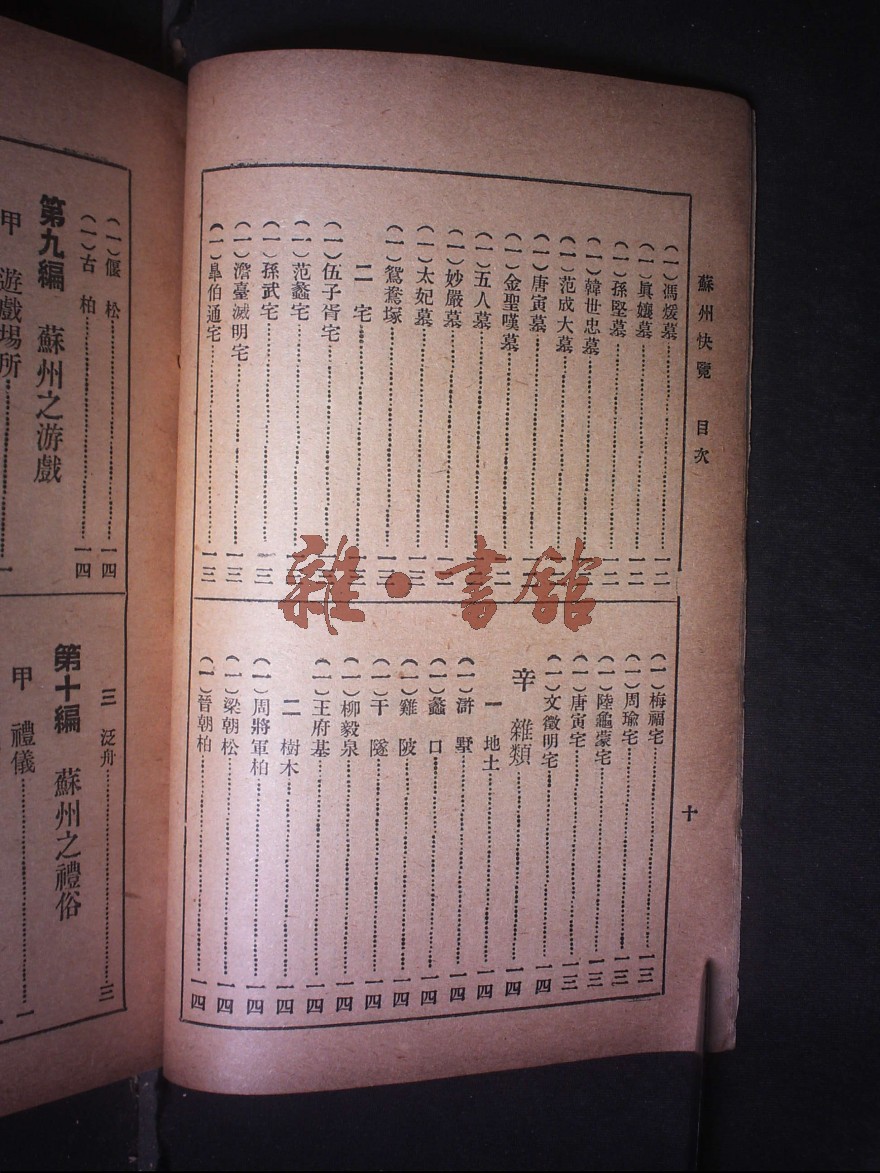 蘇州快覽 目次
十
(一)馮煖墓……一二
(一)眞孃墓……一二
(一)孫堅墓……一二
(一)韓世忠墓……一二
(一)范成大墓……一二
(一)唐寅墓……一二
(一)金聖嘆墓……一二
(一)五人墓……
(一)妙嚴墓……
(一)太妃墓……一三
(一)鴛鴦塚……一三
二 宅……
(一)伍子胥宅……
(一)范蠡宅……
(一)孫武宅……一三
(一)澹臺滅明宅……一三
(一)臯伯通宅……一三
(一)梅福宅……一三
(一)周瑜宅……一三
(一)陸龜蒙宅……一三
(一)唐寅宅……一三
(一)文徵明宅……一四
辛 雜類……一四
一 地土……一四
(一)滸墅……一四
(一)蠡口……一四
(一)雞陂……一四
(一)干隧……一四
(一)柳毅泉……一四
(一)王府基……一四
二 樹木……一四
(一)周將軍柏……一四
(一)梁朝松……一四
(一)晉朝柏……一四
(一)偃松……一四
(一)古柏……一四
第九編 蘇州之游戲
甲 遊戲場所……一
三 泛舟……三
第十編 蘇州之禮俗
甲 禮儀……一
雜·書館